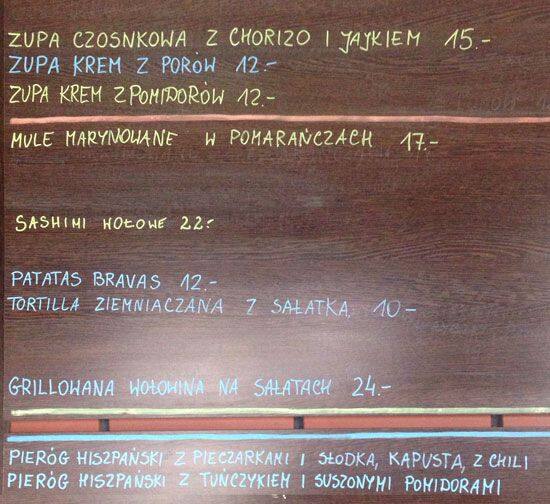 ZUPA CZOSNKOWA Z CHORIZO I JAJKIEM 15.-
ZUPA KREM Z PORÓW 12.-
ZUPA KREM Z POMIDORÓW 12.-
MULE MARYNOWANE W POMARAŃCZACH 17.-
SASHIMI WOŁOWE 22.-
PATATAS BRAVAS 12.-
TORTILLA ZIEMNIACZANA Z SAŁATKĄ 10-
GRILLOWANA WOŁOWINA NA SAŁATACH 24.-
PIERÓG HISZPAŃSKI Z PIECZARKAMI I SŁODKĄ KAPUSTĄ, Z CHILI
PIERÓG HISZPAŃSKI Z TUŃCZYKIEM I SUSZONYMI POMIDORAMI